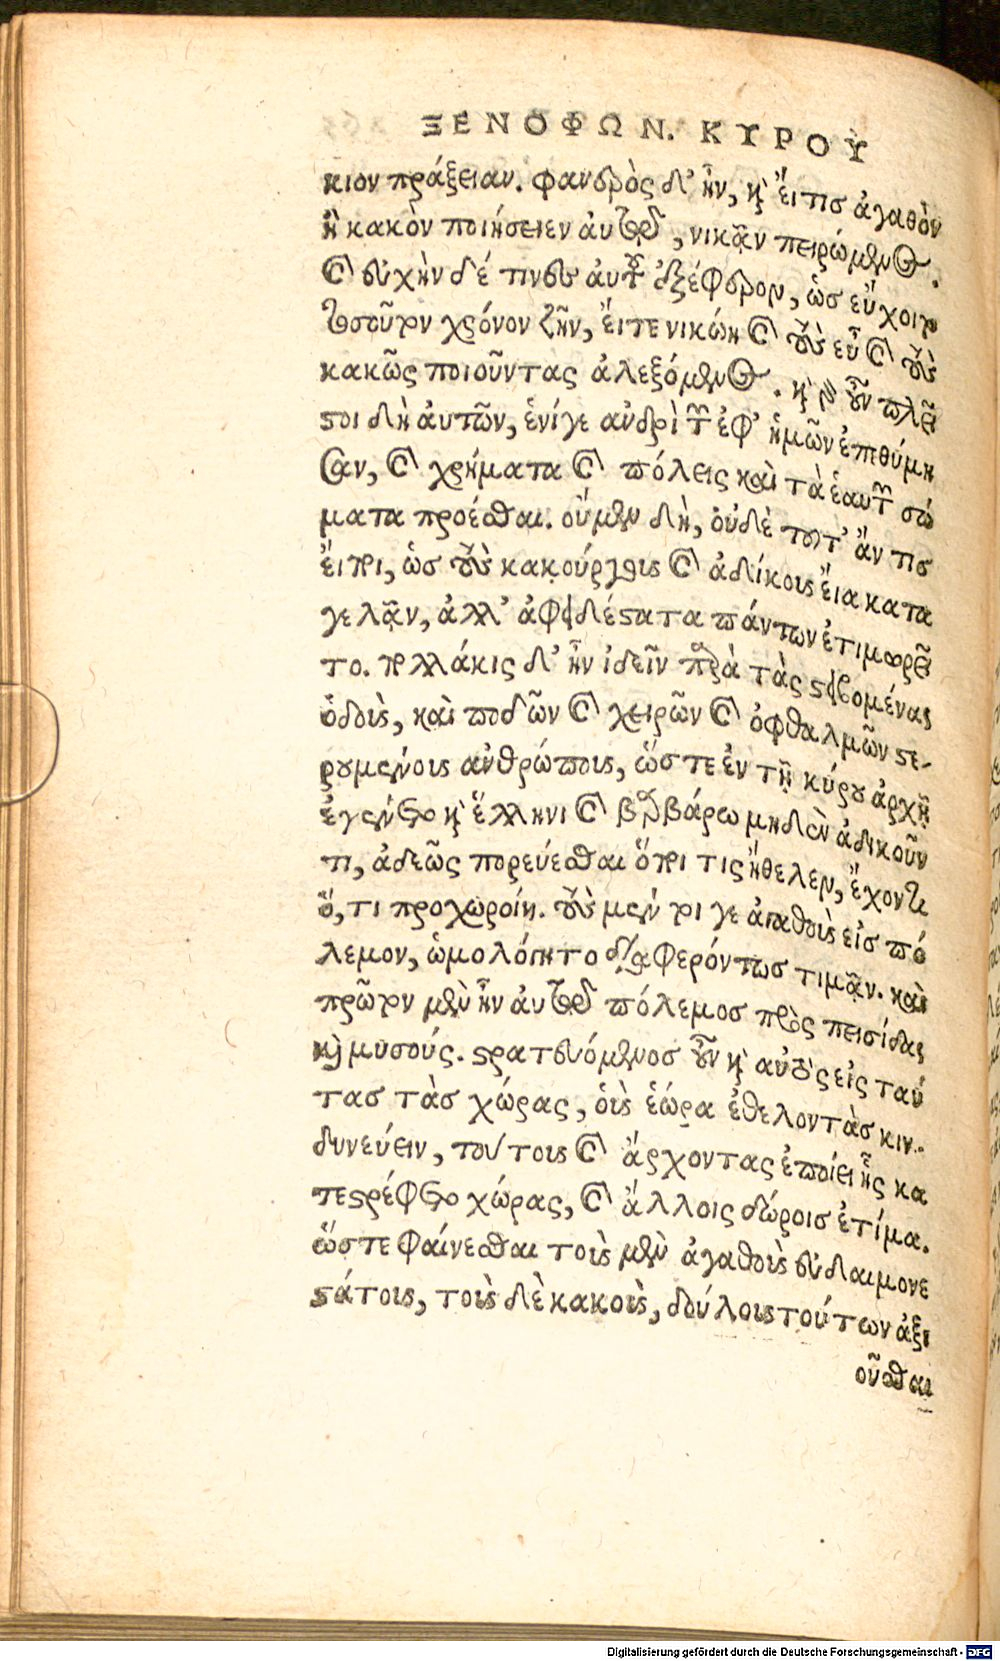 ΞΕΝΟΦΩΝ. ΚΥΡΟΥ
κιον πράξειαν. φανερὸς δ' ἦν, καὶ εἴ τις ἀγαθὸν
ἢ κακὸν ποιήσειεν αὐτὸν, νικᾷν πειρώμενος.
καὶ εὐχὴν δέ τινες αὐτοῦ ἐξέφερον, ὡς εὔχοιτο
τοσοῦτον χρόνον ζῆν, ἔιτε νικώη καὶ τοὺς εὖ καὶ τοὺς
κακῶς ποιοῦντας ἀλεξόμενος. καὶ γὰρ οὖν πλεῖ
στοι δὴ αὐτῶν, ἑνί γε ἀνδρὶ τῶν ἐφ' ἡμῶν ἐπεθύμη
σαν, καὶ χρήματα καὶ πόλεις καὶ τὰ ἑαυτῶν σώ
ματα προέσθαι. οὐ μὲν δὴ, οὐδὲ τοῦτ' ἄν τις
εἴποι, ὡς τοὺς κακούργους καὶ ἀδίκους εἴα κατα
γελᾷν, ἀλλ' ἀφειδέστατα πάντων ἐτιμωρεῖ
το. πολλάκις δ' ἦν ἰδεῖν παρὰ τὰς στειβομένας
ὁδοὺς, καὶ ποδῶν καὶ χειρῶν καὶ ὀφθαλμῶν στε-
ρουμένους ἀνθρώπους, ὥστε ἐν τῇ κύρου ἀρχῇ
ἐγένετο καὶ ἕλληνι καὶ βαρβάρω μηδὲν ἀδικοῦν
τι, ἀδεῶς πορεύεσθαι ὅποι τις ἤθελεν, ἔχοντι
ὅ,τι προχωροίη. τοὺς μέν τοι γε ἀγαθοὺς εἰς πό
λεμον, ὡμολόγητο διαφερόντως τιμᾷν. καὶ
πρῶτον μὲν ἦν αὐτῷ πόλεμος πρὸς πεισίδας
καὶ μυσούς. στρατευόμενος οὖν καὶ αὐτὸς εἰς ταύ
τας τὰς χώρας, οὓς ἑώρα ἐθελοντὰς κιν-
δυνεύειν, τούτους καὶ ἄρχοντας ἐποίει ἧς κα
τεστρέφετο χώρας, καὶ ἄλλοις δώροις ἐτίμα.
ὥστε φαίνεσθαι τοὺς μὲν ἀγαθοὺς εὐδαιμονε
στάτους, τοὺς δὲ κακοὺς, δούλους τούτων ἀξι
οῦσθαι